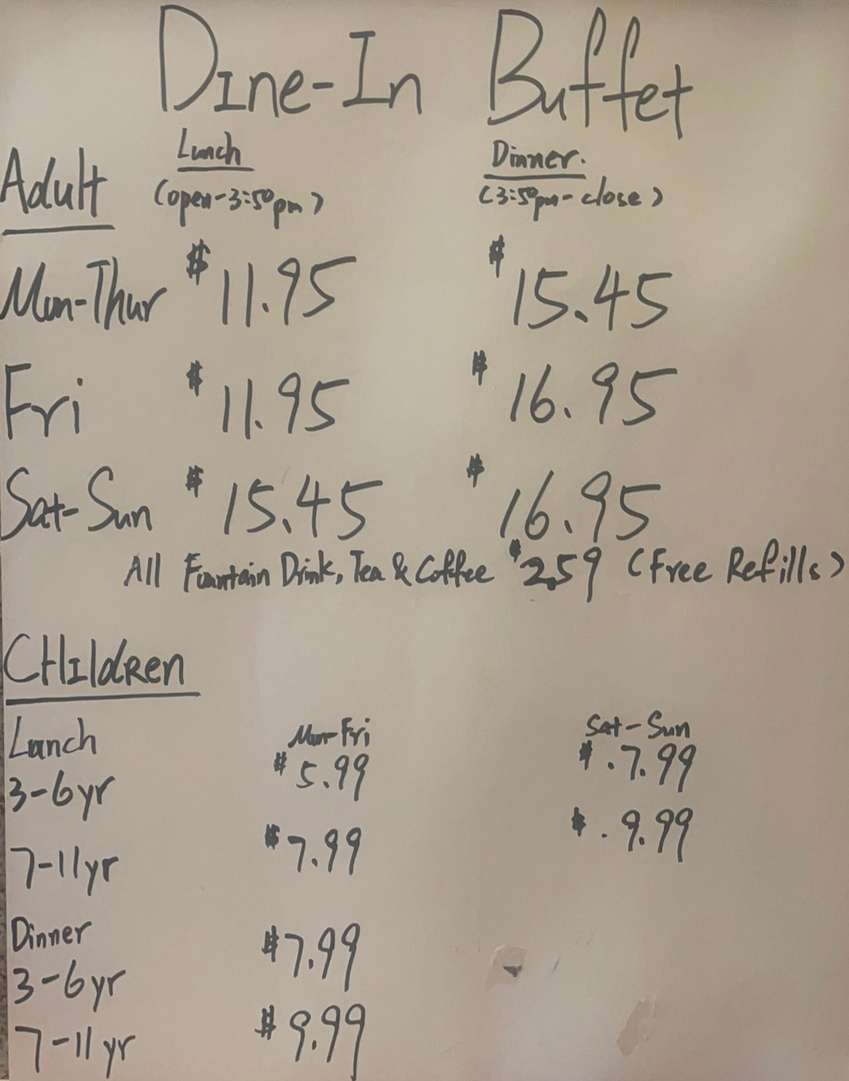 Dine-In Buffet
Adult Lunch Dinner.
(open-3:50pm) (3:50pm-close)
Mon-Thur $11.95 $15.45
Fri $11.95 $16.95
Sat-Sun $15.45 $16.95
All Fountain Drink, Tea & Coffee $2.59 (Free Refills)
CHildRen
Lunch Mon-Fri Sat-Sun
3-6yr $5.99 $.7.99
7-11yr $7.99 $.9.99
Dinner
3-6yr $7.99
7-11yr $9.99